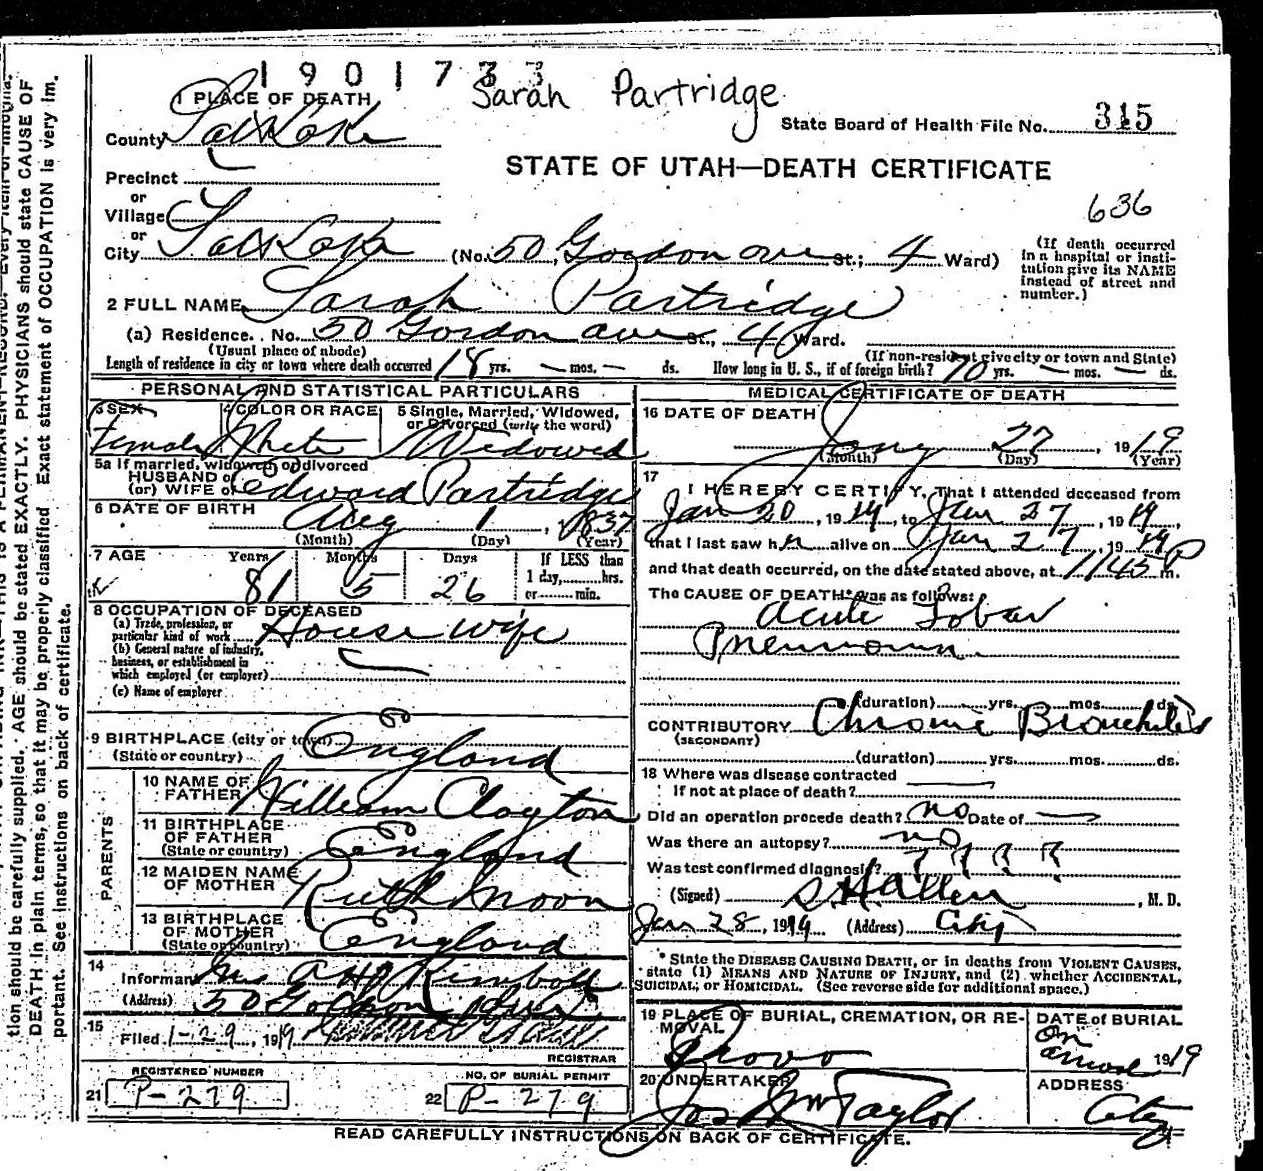 1901733
Sarah Partridge
1 PLACE OF DEATH
State Board of Health File No. 315
County Salt Lake
STATE OF UTAH—DEATH CERTIFICATE
Precinct
636
or
Village
or
City Salt Lake (No. 50 Gordon ave St.; 4 Ward)
(If death occurred in a hospital or institution give its NAME instead of street and number.)
2 FULL NAME Sarah Partridge
(a) Residence. No. 50 Gordon ave St., 4 Ward.
(Usual place of abode) (If non-resident give city or town and State)
Length of residence in city or town where death occurred 18 yrs. — mos. — ds. How long in U. S., if of foreign birth? 70 yrs. — mos. — ds.
PERSONAL AND STATISTICAL PARTICULARS
3 SEX 4 COLOR OR RACE 5 Single, Married, Widowed, or Divorced (write the word)
Female White Widowed
5a If married, widowed or divorced
HUSBAND of
(or) WIFE of Edward Partridge
6 DATE OF BIRTH Aug 1, 1837
(Month) (Day) (Year)
7 AGE Years Months Days If LESS than
81 5 26 1 day,......hrs.
or......min.
8 OCCUPATION OF DECEASED
(a) Trade, profession, or
particular kind of work House wife
(b) General nature of industry,
business, or establishment in
which employed (or employer)
(c) Name of employer
9 BIRTHPLACE (city or town)
(State or country) England
PARENTS
10 NAME OF FATHER William Clayton
11 BIRTHPLACE OF FATHER
(State or country) England
12 MAIDEN NAME OF MOTHER Ruth Moon
13 BIRTHPLACE OF MOTHER
(State or country) England
14
Informant Mrs A H P Kimball
(Address) 50 Gordon
15
Filed 1-29, 1919
REGISTRAR
REGISTERED NUMBER NO. OF BURIAL PERMIT
21 P-279 22 P-279
MEDICAL CERTIFICATE OF DEATH
16 DATE OF DEATH
Jany 27, 1919
(Month) (Day) (Year)
17
I HEREBY CERTIFY, That I attended deceased from
Jan 20, 1919, to Jan 27, 1919,
that I last saw her alive on Jan 27, 1919
and that death occurred, on the date stated above, at 1145 P m.
The CAUSE OF DEATH* was as follows:
Acute Lobar
Pneumonia
(duration)......yrs.......mos.......ds.
CONTRIBUTORY Chronic Bronchitis
(SECONDARY)
(duration)......yrs.......mos.......ds.
18 Where was disease contracted
If not at place of death? —
Did an operation precede death? no Date of —
Was there an autopsy? no
Was test confirmed diagnosis? ? ? ? ?
(Signed) S. H. Allen, M. D.
Jan 28, 1919 (Address) City
* State the DISEASE CAUSING DEATH, or in deaths from VIOLENT CAUSES,
state (1) MEANS AND NATURE OF INJURY, and (2) whether ACCIDENTAL,
SUICIDAL, or HOMICIDAL. (See reverse side for additional space.)
19 PLACE OF BURIAL, CREMATION, OR REMOVAL
Provo
DATE of BURIAL
On
1919
20 UNDERTAKER
Jos Wm Taylor
ADDRESS
City
READ CAREFULLY INSTRUCTIONS ON BACK OF CERTIFICATE.
tion should be carefully supplied. AGE should be stated EXACTLY. PHYSICIANS should state CAUSE OF
DEATH in plain terms, so that it may be properly classified. Exact statement of OCCUPATION is very im-
portant. See instructions on back of certificate.